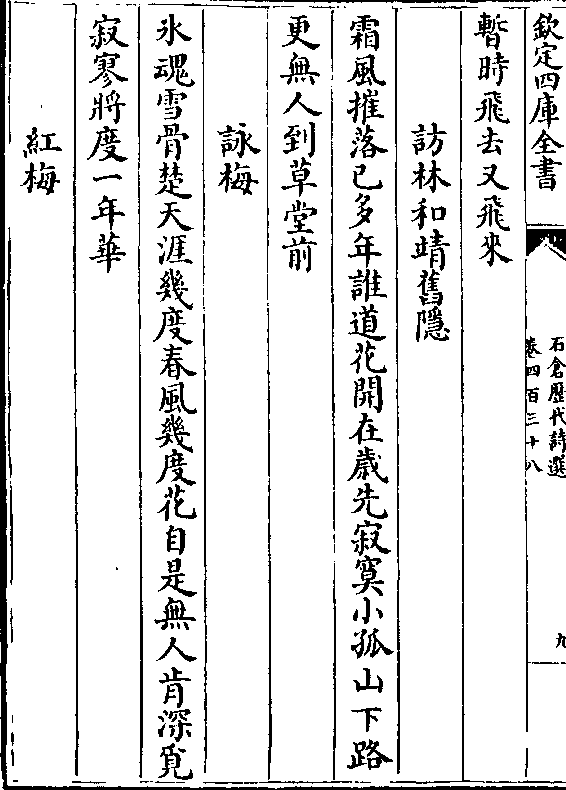 欽定四庫全書
石倉歷代詩選
卷四百三十八
九
暫時飛去又飛來
訪林和靖舊隱
霜風摧落已多年誰道花開在歲先寂寞小孤山下路
更無人到草堂前
詠梅
氷魂雪骨楚天涯幾度春風幾度花自是無人肯深覓
寂寥將度一年華
紅梅